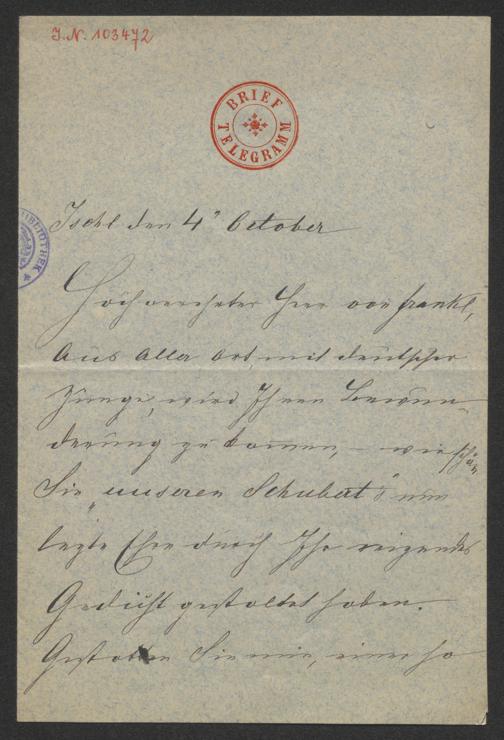 J.N. 103472
BRIEF
TELEGRAMM
BIBLIOTHEK
Ischl den 4" October
Hochverehrter Herr von Frankl,
Aus aller Ort, mit deutscher
Zunge, wird Ihnen Bewun-
derung zu kommen, – wie schön
Sie „unseren Schubert" die
letzte Ehre durch Ihr reizendes
Gedicht gestaltet haben.
Gestatten Sie mir, einer so